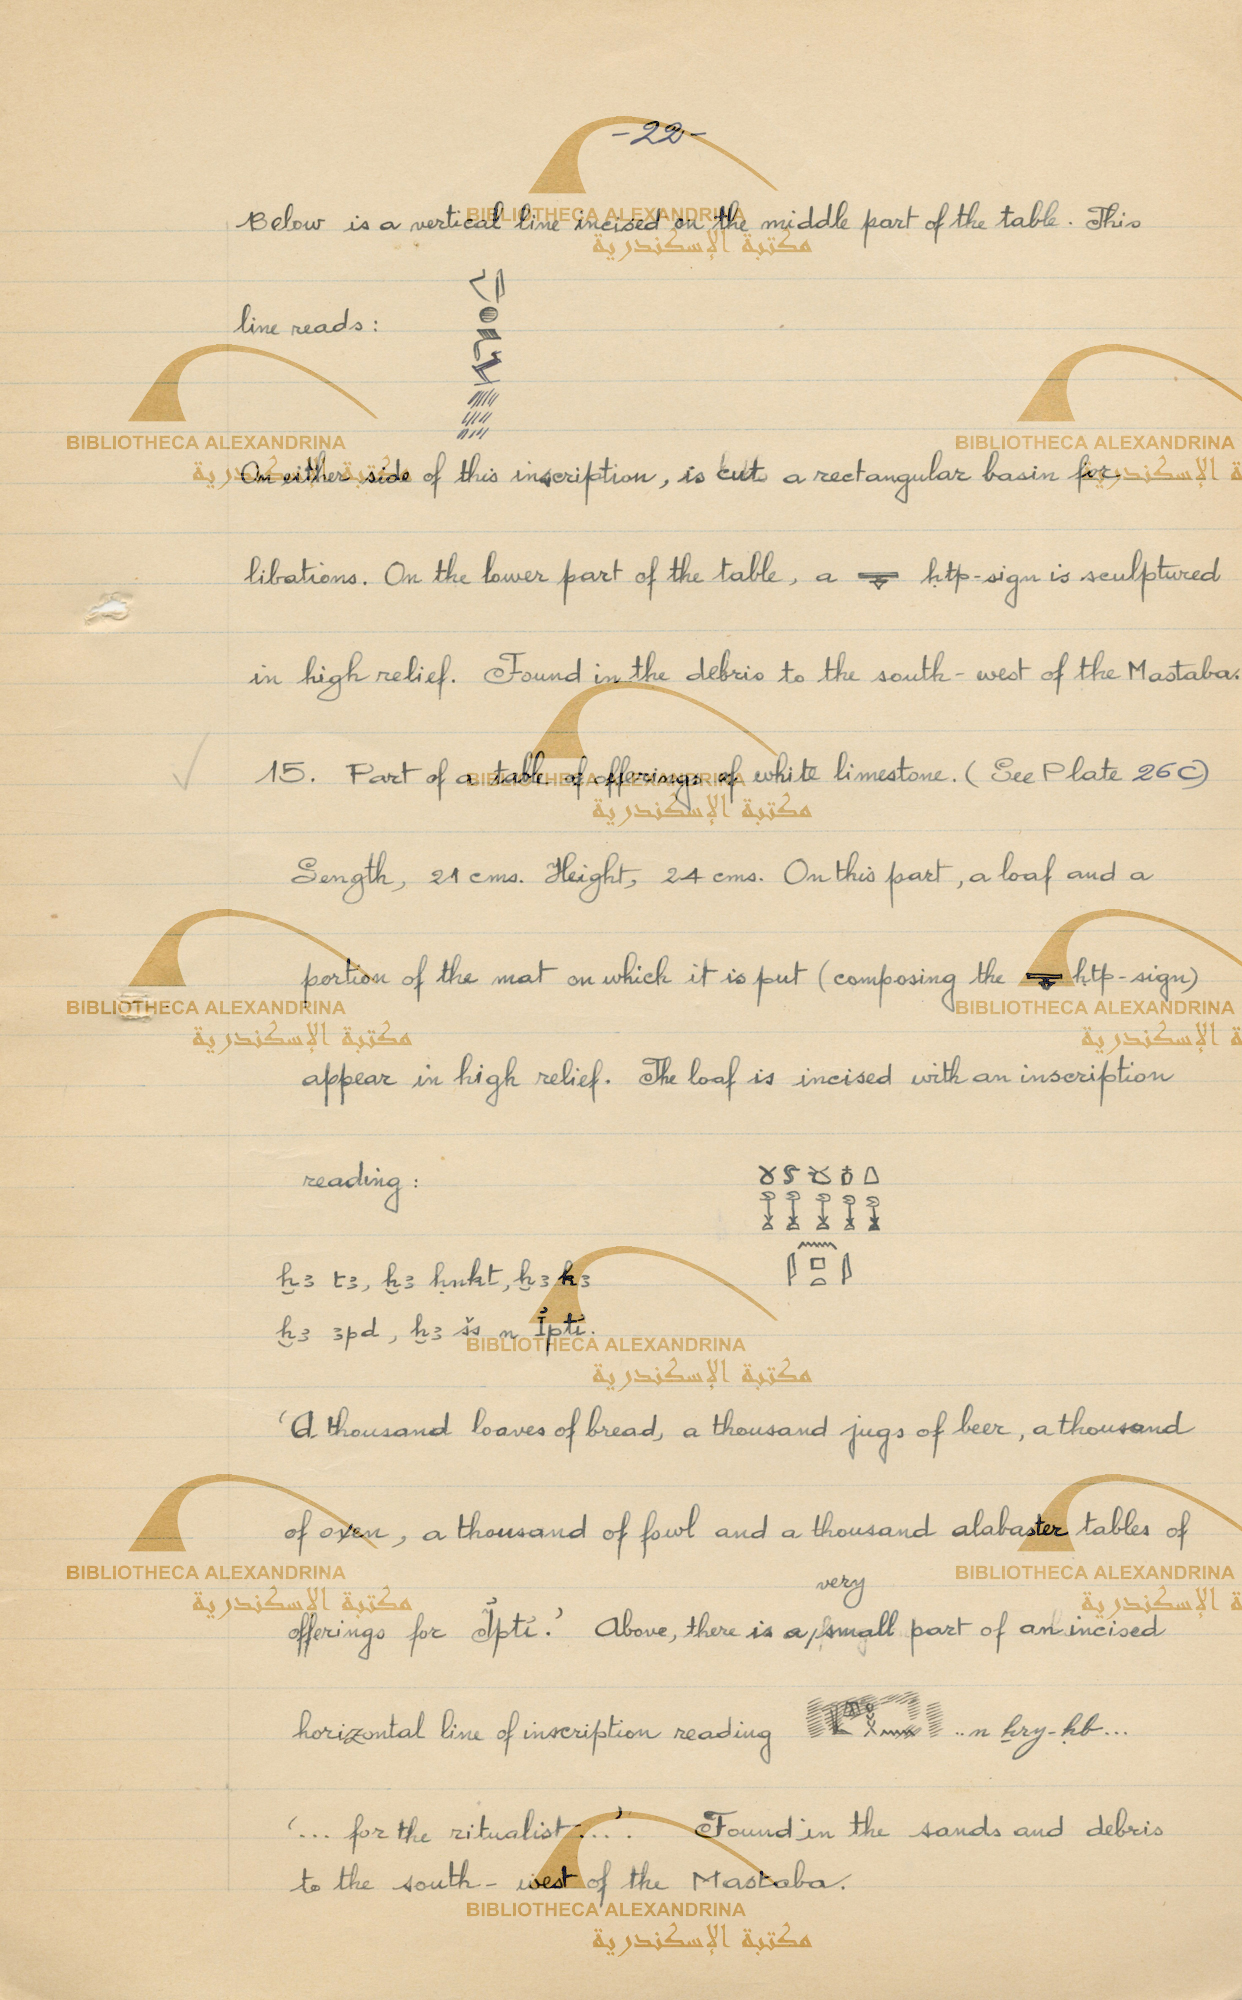 -22-
Below is a vertical line incised on the middle part of the table. This
line reads:
On either side of this inscription, is cut a rectangular basin for
libations. On the lower part of the table, a 𓊵 ḥtp-sign is sculptured
in high relief. Found in the debris to the south-west of the Mastaba.
15. Part of a table of offerings of white limestone. (See Plate 26C)
Length, 21 cms. Height, 24 cms. On this part, a loaf and a
portion of the mat on which it is put (composing the 𓊵 ḥtp-sign)
appear in high relief. The loaf is incised with an inscription
reading:
ẖ3 t3, ẖ3 ḥnkt, ẖ3 k3
ẖ3 3pd, ẖ3 šs n Ỉptỉ.
'A thousand loaves of bread, a thousand jugs of beer, a thousand
of oxen, a thousand of fowl and a thousand alabaster tables of
very
offerings for Ỉptỉ.' Above, there is a small part of an incised
horizontal line of inscription reading ..n ẖry-ḥb...
'... for the ritualist...'. Found in the sands and debris
to the south-west of the Mastaba.
BIBLIOTHECA ALEXANDRINA
مكتبة الإسكندرية